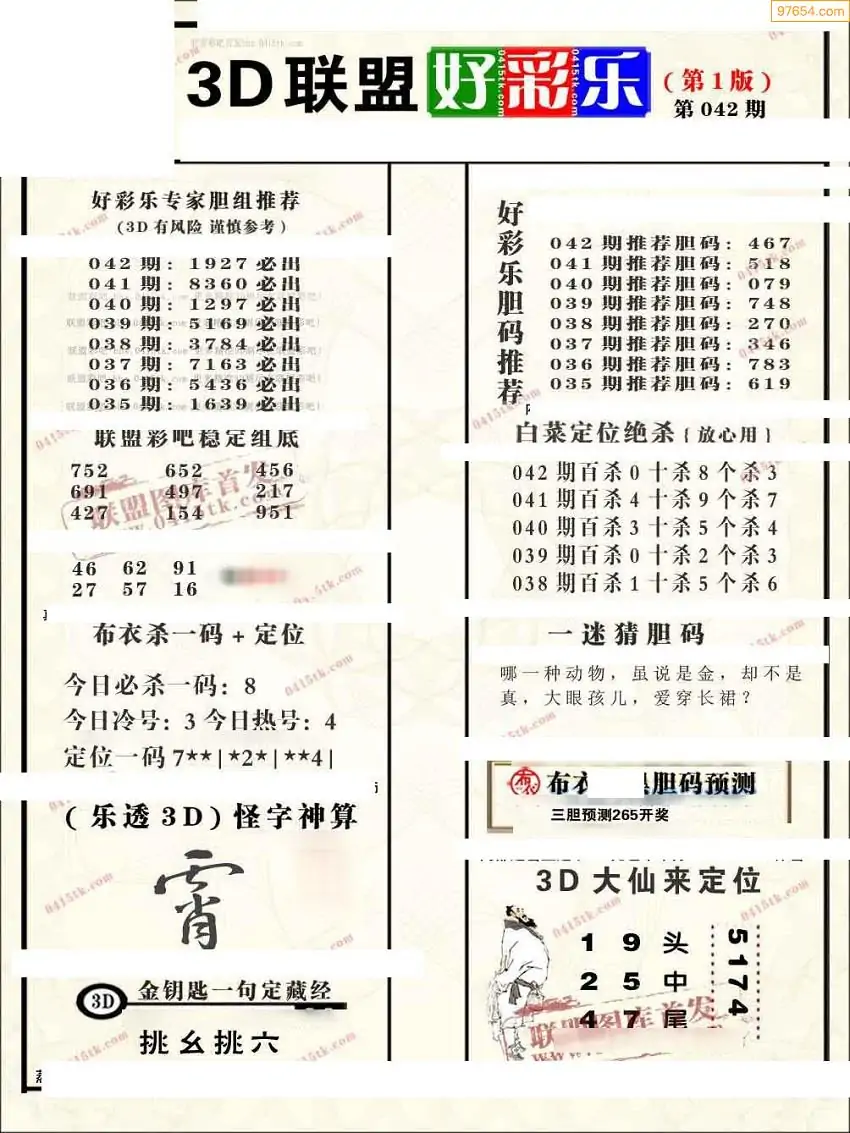 97654.com
3D联盟好彩乐(第1版)
第042期
好彩乐专家胆组推荐
(3D有风险 谨慎参考)
042期：1927必出
041期：8360必出
040期：1297必出
039期：5169必出
038期：3784必出
037期：7163必出
036期：5436必出
035期：1639必出
联盟彩吧稳定组底
752 652 456
691 497 217
427 154 951
联盟图库首发
46 62 91
27 57 16
布衣杀一码+定位
今日必杀一码：8
今日冷号：3 今日热号：4
定位一码7**|*2*|**4|
(乐透3D)怪字神算
霄
3D 金钥匙一句定藏经
挑幺挑六
好彩乐胆码推荐
042期推荐胆码：467
041期推荐胆码：518
040期推荐胆码：079
039期推荐胆码：748
038期推荐胆码：270
037期推荐胆码：346
036期推荐胆码：783
035期推荐胆码：619
白菜定位绝杀{放心用}
042期百杀0十杀8个杀3
041期百杀4十杀9个杀7
040期百杀3十杀5个杀4
039期百杀0十杀2个杀3
038期百杀1十杀5个杀6
一迷猜胆码
哪一种动物，虽说是金，却不是
真，大眼孩儿，爱穿长裙？
布衣 胆码预测
三胆预测265开奖
3D大仙来定位
1 9 头
2 5 中
4 7 尾
5174
联盟图库首发
0415tk.com